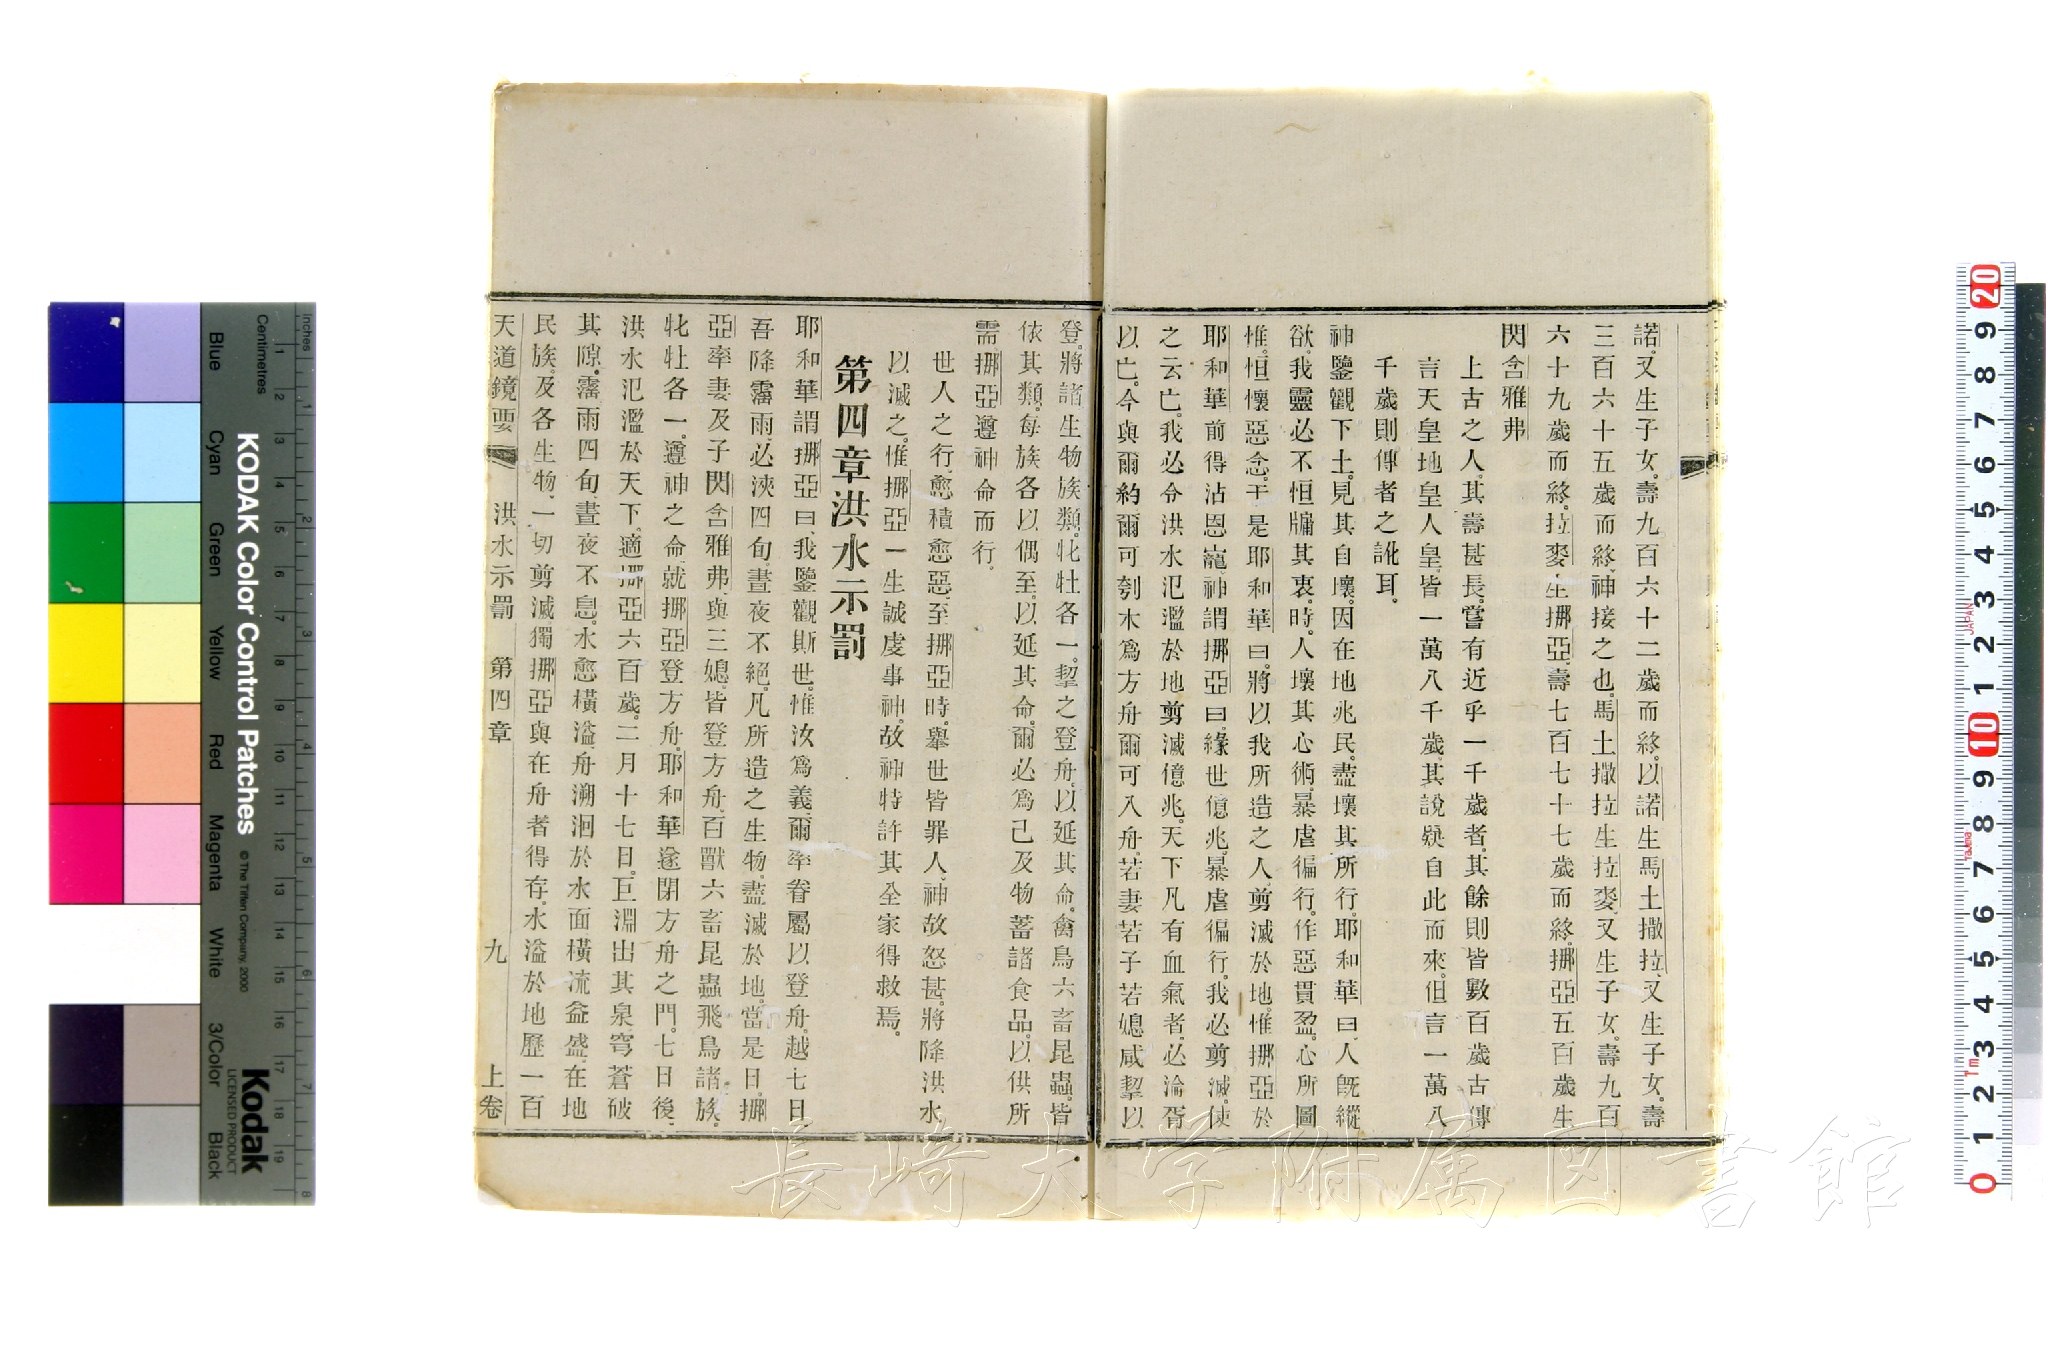 諾。又生子女。壽九百六十二歲而終。以諾生馬土撒拉。又生子女。壽
三百六十五歲而終。神接之也。馬土撒拉生拉麥。又生子女。壽九百
六十九歲而終。拉麥生挪亞。壽七百七十七歲而終。挪亞五百歲生
閃含雅弗
上古之人。其壽甚長。嘗有近乎一千歲者。其餘則皆數百歲。古傳
言天皇地皇人皇。皆一萬八千歲。其說疑自此而來。但言一萬八
千歲則傳者之訛耳。
神鑒觀下土。見其自壞。因在地兆民。盡壞其所行。耶和華曰。人旣縱
欲。我靈必不恒牖其衷。時。人壞其心術。暴虐徧行。作惡貫盈。心所圖
惟。恒懷惡念。于是耶和華曰。將以我所造之人。剪滅於地。惟挪亞於
耶和華前得沾恩寵。神謂挪亞曰。緣世億兆。暴虐徧行。我必剪滅。使
之云亡。我必令洪水氾濫於地。剪滅億兆。天下凡有血氣者。必淪胥
以亡。今與爾約。爾可刳木爲方舟。爾可入舟。若妻若子若媳咸挈以
登。將諸生物族類。牝牡各一。挈之登舟。以延其命。禽鳥六畜昆蟲。皆
依其類。每族各以偶至。以延其命。爾必爲己及物蓄諸食品。以供所
需。挪亞遵神命而行。
世人之行。愈積愈惡。至挪亞時。舉世皆罪人。神故怒甚。將降洪水
以滅之。惟挪亞一生誠虔事神。故神特許其全家得救焉。
第四章洪水示罰
耶和華謂挪亞曰。我鑒觀斯世。惟汝爲義。爾率眷屬以登舟。越七日
吾降霪雨。必浹四旬。晝夜不絕。凡所造之生物。盡滅於地。當是日。挪
亞率妻及子閃含雅弗。與三媳。皆登方舟。百獸六畜昆蟲飛鳥諸族。
牝牡各一。遵神之命。就挪亞登方舟。耶和華遂閉方舟之門。七日後。
洪水氾濫於天下。適挪亞六百歲。二月十七日。巨淵出其泉。穹蒼破
其隙。霪雨四旬。晝夜不息。水愈橫溢。舟溯洄於水面。橫流益盛。在地
民族。及各生物。一切剪滅。獨挪亞與在舟者得存。水溢於地。歷一百
天道鏡要 洪水示罰 第四章 九 上卷
長崎大学附属図書館
KODAK Color Control Patches
© The Tiffen Company, 2000
Kodak
LICENSED PRODUCT
Inches
Centimetres
Blue
Cyan
Green
Yellow
Red
Magenta
White
3/Color
Black
JAPAN